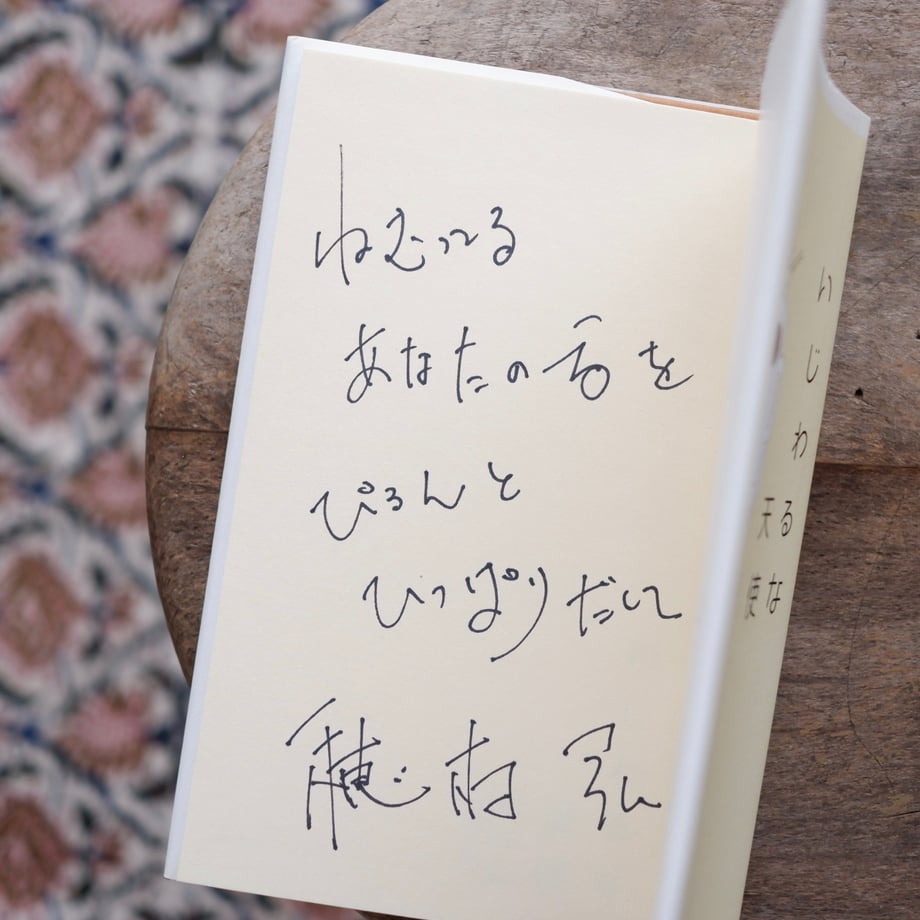 ねむってる
あなたの舌を
ぴろんと
ひっぱりだして
穂村弘
いじわるな
天使